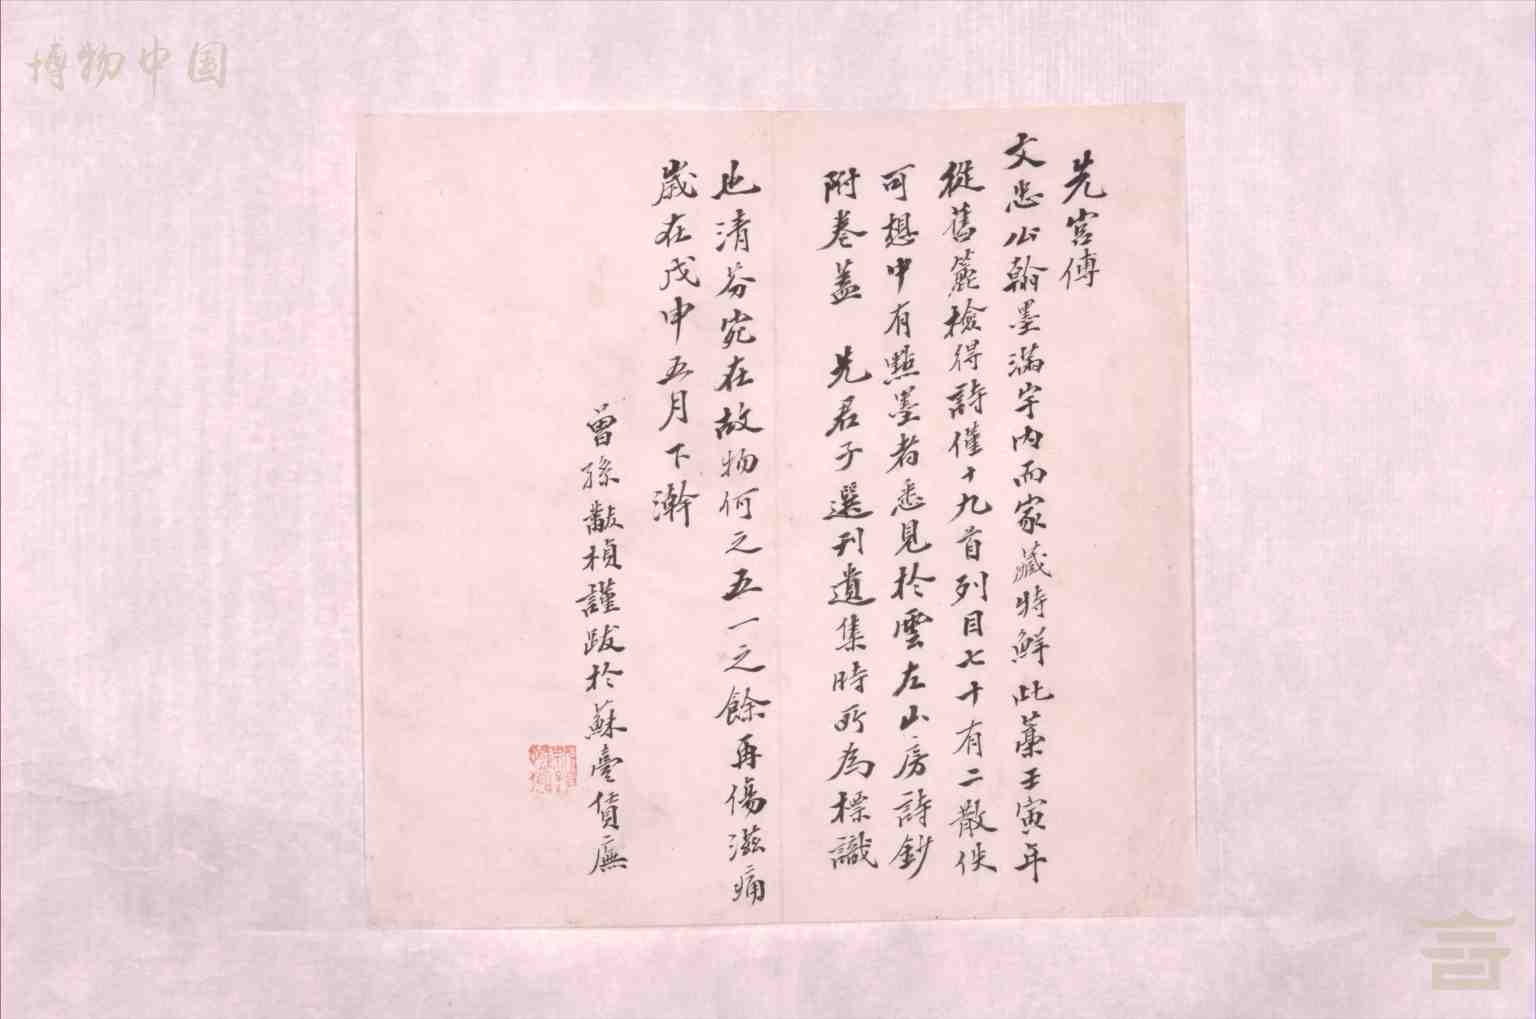 先宮傅
文忠公翰墨滿宇内而家藏特鮮此藁壬寅年
從舊簏檢得詩僅十九首列目七十有二散佚
可想中有點墨者悉見於雲左山房詩鈔
附卷蓋 先君子選刊遺集時所為標識
也清芬宛在故物何之五一之餘再傷滋痛
歲在戊申五月下澣
曾孫黻楨謹跋於蘇臺賃廡
博物中国